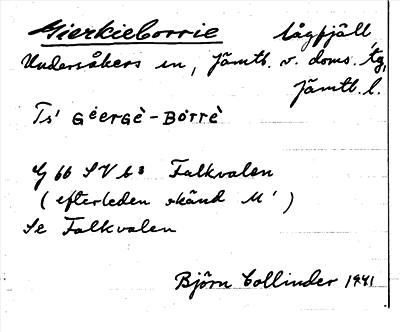 Gierkieborrie lågfjäll
Undersåkers sn, Jämtl. v. doms. tg,
Jämtl. l.
Ts' Gèergè-Bòrrè
G 66 SV b 3 Falkvalen
(efterleden okänd M')
Se Falkvalen
Björn Collinder 1941